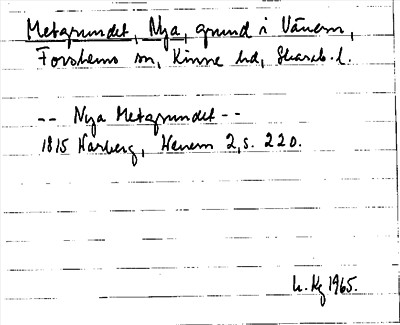 Metagrundet, Nya, grund i Vänern,
Forshems sn, Kinne hd, Skarab. l.
-- Nya Metagrundet --
1815 Warberg, Wenern 2, s. 220.
1965.